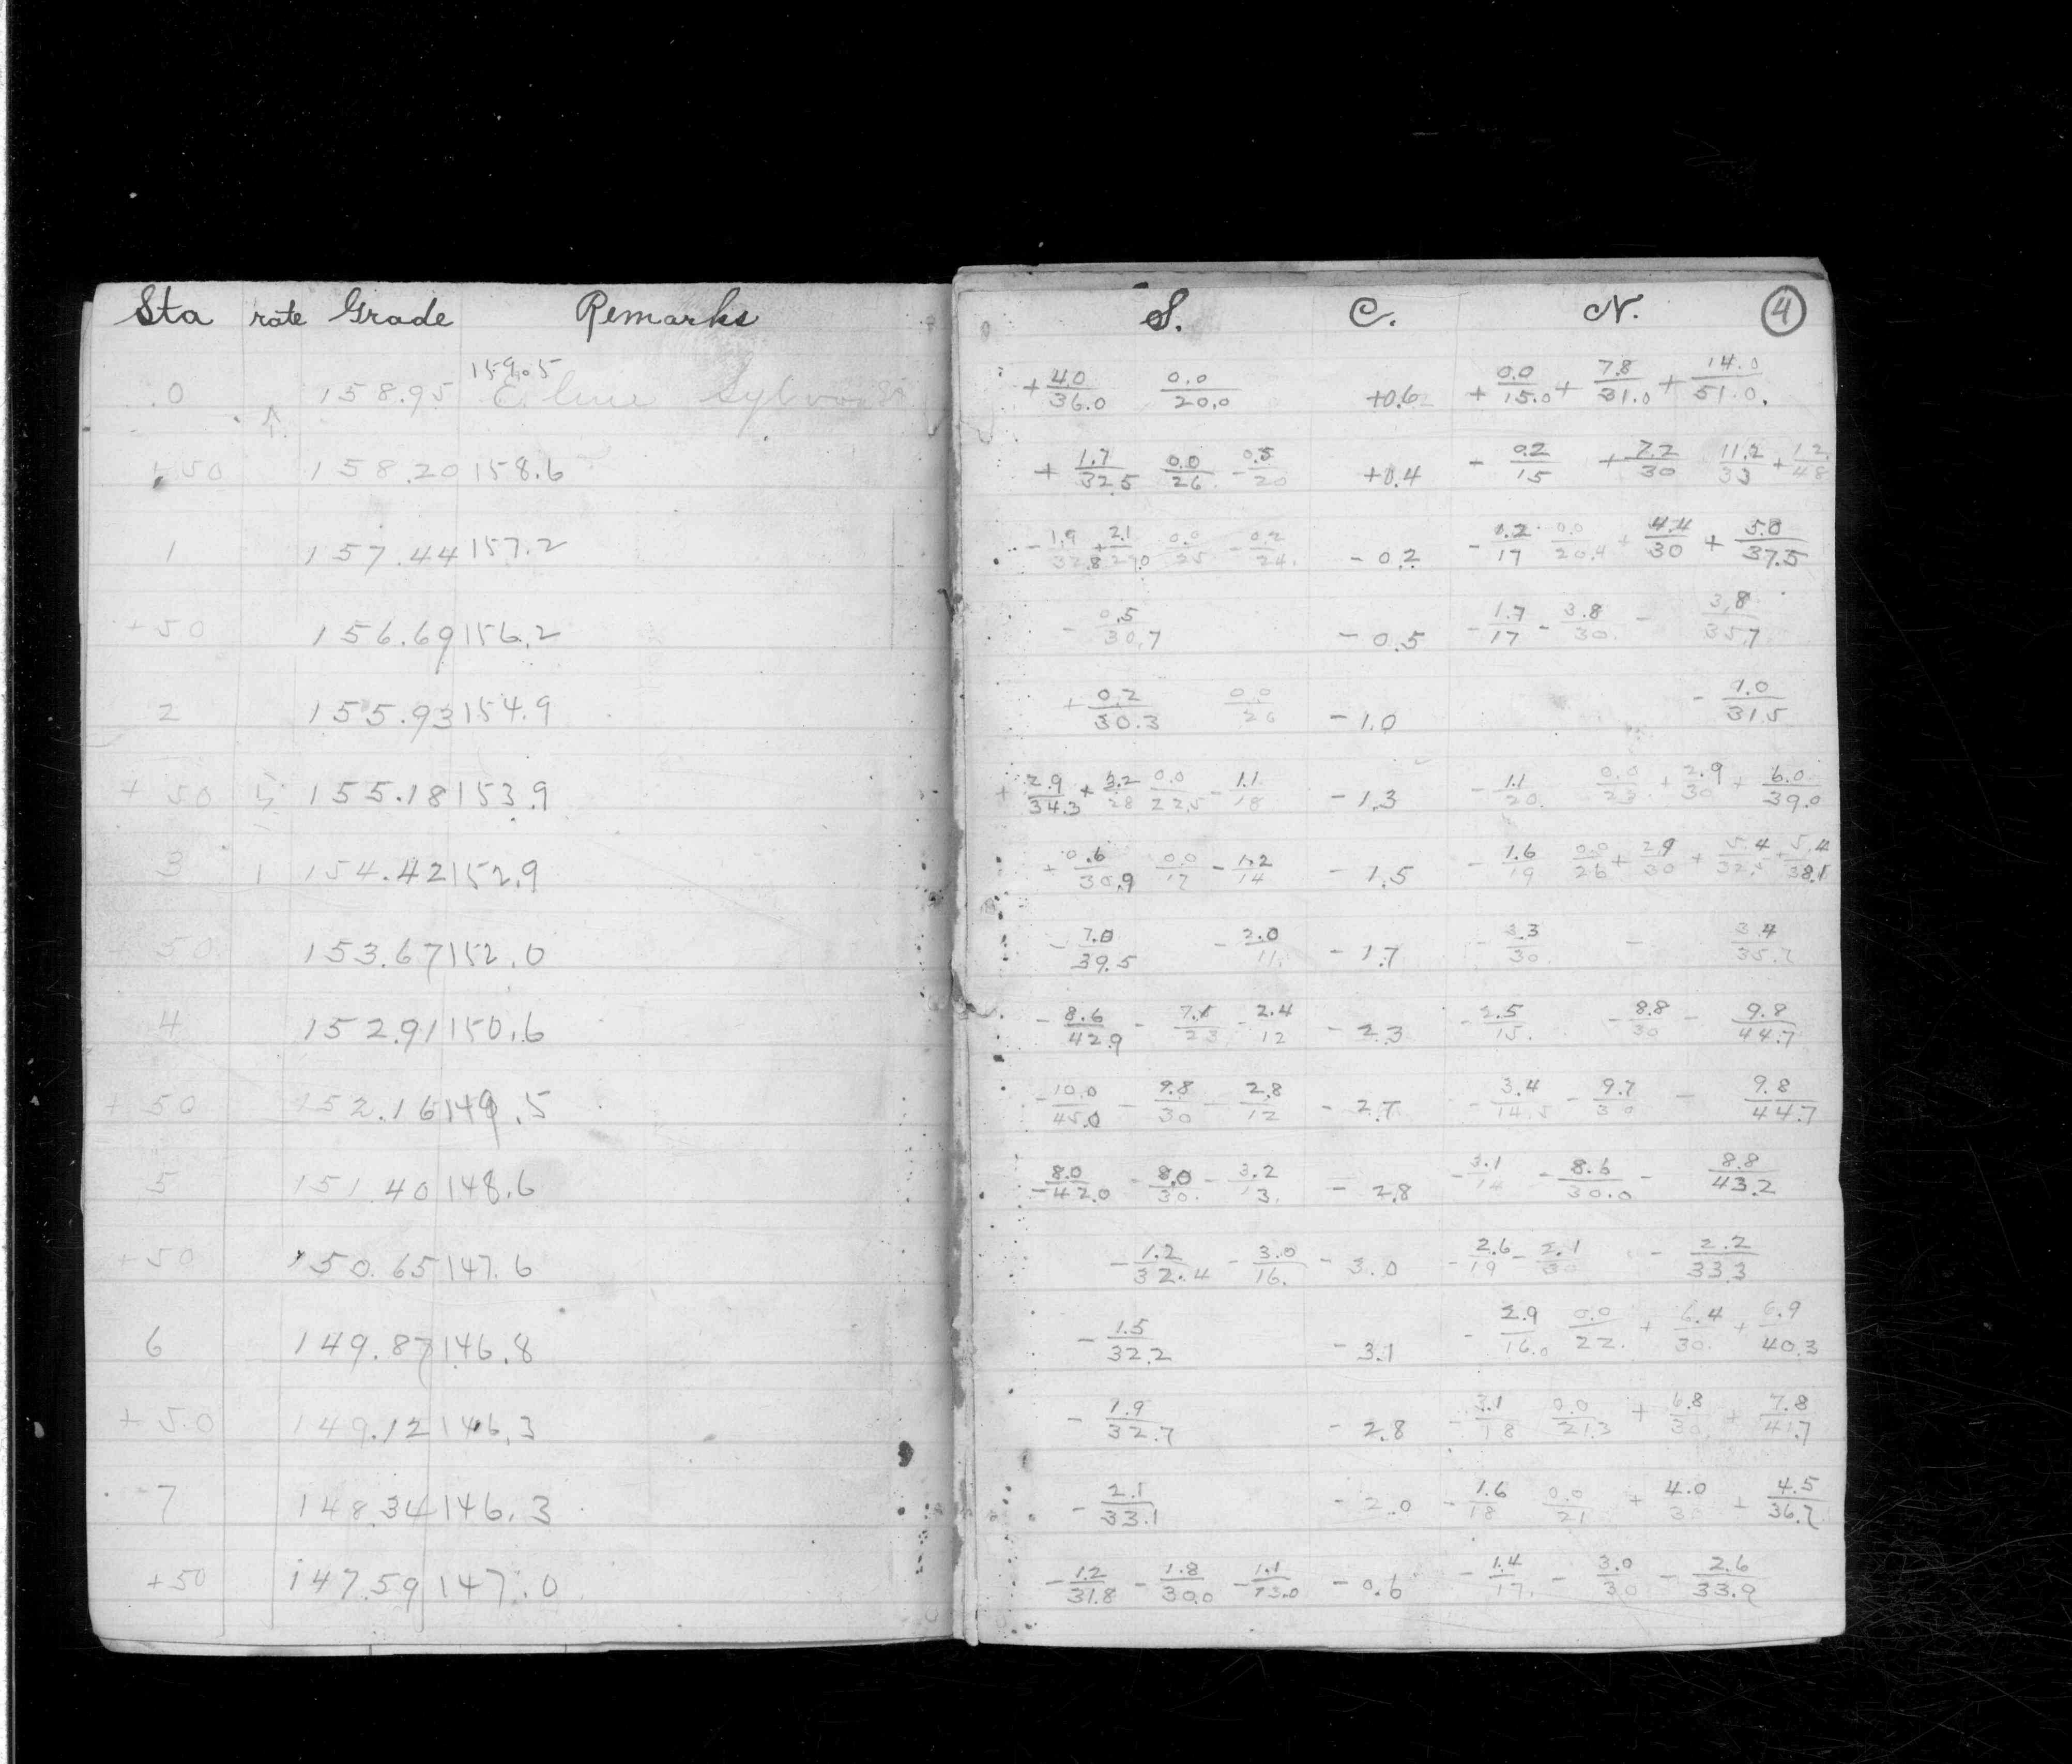 Sta rate Grade Remarks
0 158.95 159.5 E. line Sylvan St
+50 158.20 158.6
1 157.44 157.2
+50 156.69 156.2
2 155.93 154.9
+50 155.18 153.9
3 154.42 152.9
+50 153.67 152.0
4 152.91 150.6
+50 152.16 149.5
5 151.40 148.6
+50 150.65 147.6
6 149.87 146.8
+50 149.12 146.3
7 148.34 146.3
+50 147.59 147.0
S. C. N. 4
+4.0/36.0 0.0/20.0 +0.6 +0.0/15.0 +7.8/31.0 +14.0/51.0
+1.7/32.5 0.0/26 -0.5/20 +0.4 -0.2/15 +7.2/30 11.2/33 +12./48
-1.9/32.8 +2.1/29.0 0.0/25 -0.2/24. -0.2 -1.2/17 0.0/20.4 +4.4/30 +5.0/37.5
-0.5/30.7 -0.5 -1.7/17 -3.8/30. -3.8/35.7
+0.2/30.3 0.0/26 -1.0 -1.0/31.5
+2.9/34.3 +3.2/28 0.0/22.5 -1.1/18 -1.3 -1.1/20. 0.0/23 +2.9/30 +6.0/39.0
+0.6/30.9 0.0/17 -1.2/14 -1.5 -1.6/19 0.0/26 +2.9/30 +5.4/32.5 +5.4/38.1
-7.0/39.5 -2.0/11. -1.7 -3.3/30 -3.4/35.2
-8.6/42.9 -7.1/23 -2.4/12 -2.3 -2.5/15. -8.8/30 -9.8/44.7
-10.0/45.0 -9.8/30 -2.8/12 -2.7 -3.4/14.5 -9.7/30 -9.8/44.7
-8.0/42.0 -8.0/30. -3.2/13. -2.8 -3.1/14 -8.6/30.0 -8.8/43.2
-1.2/32.4 -3.0/16. -3.0 -2.6/19 -2.1/30 -2.2/33.3
-1.5/32.2 -3.1 -2.9/16.0 0.0/22. +6.4/30. +6.9/40.3
-1.9/32.7 -2.8 -3.1/18 0.0/21.3 +6.8/30. +7.8/41.7
-2.1/33.1 -2.0 -1.6/18 0.0/21 +4.0/30 +4.5/36.7
-1.2/31.8 -1.8/30.0 -1.1/13.0 -0.6 -1.4/17. -3.0/30 -2.6/33.9